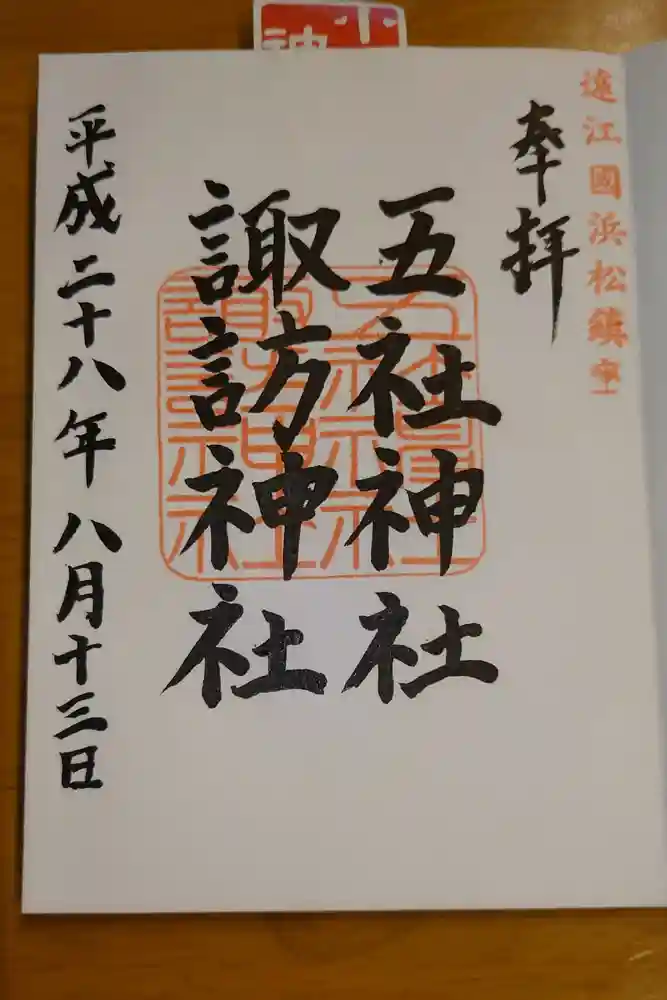 遠江國浜松鎮守
奉拝
五社神社
諏訪神社
平成二十八年八月十三日